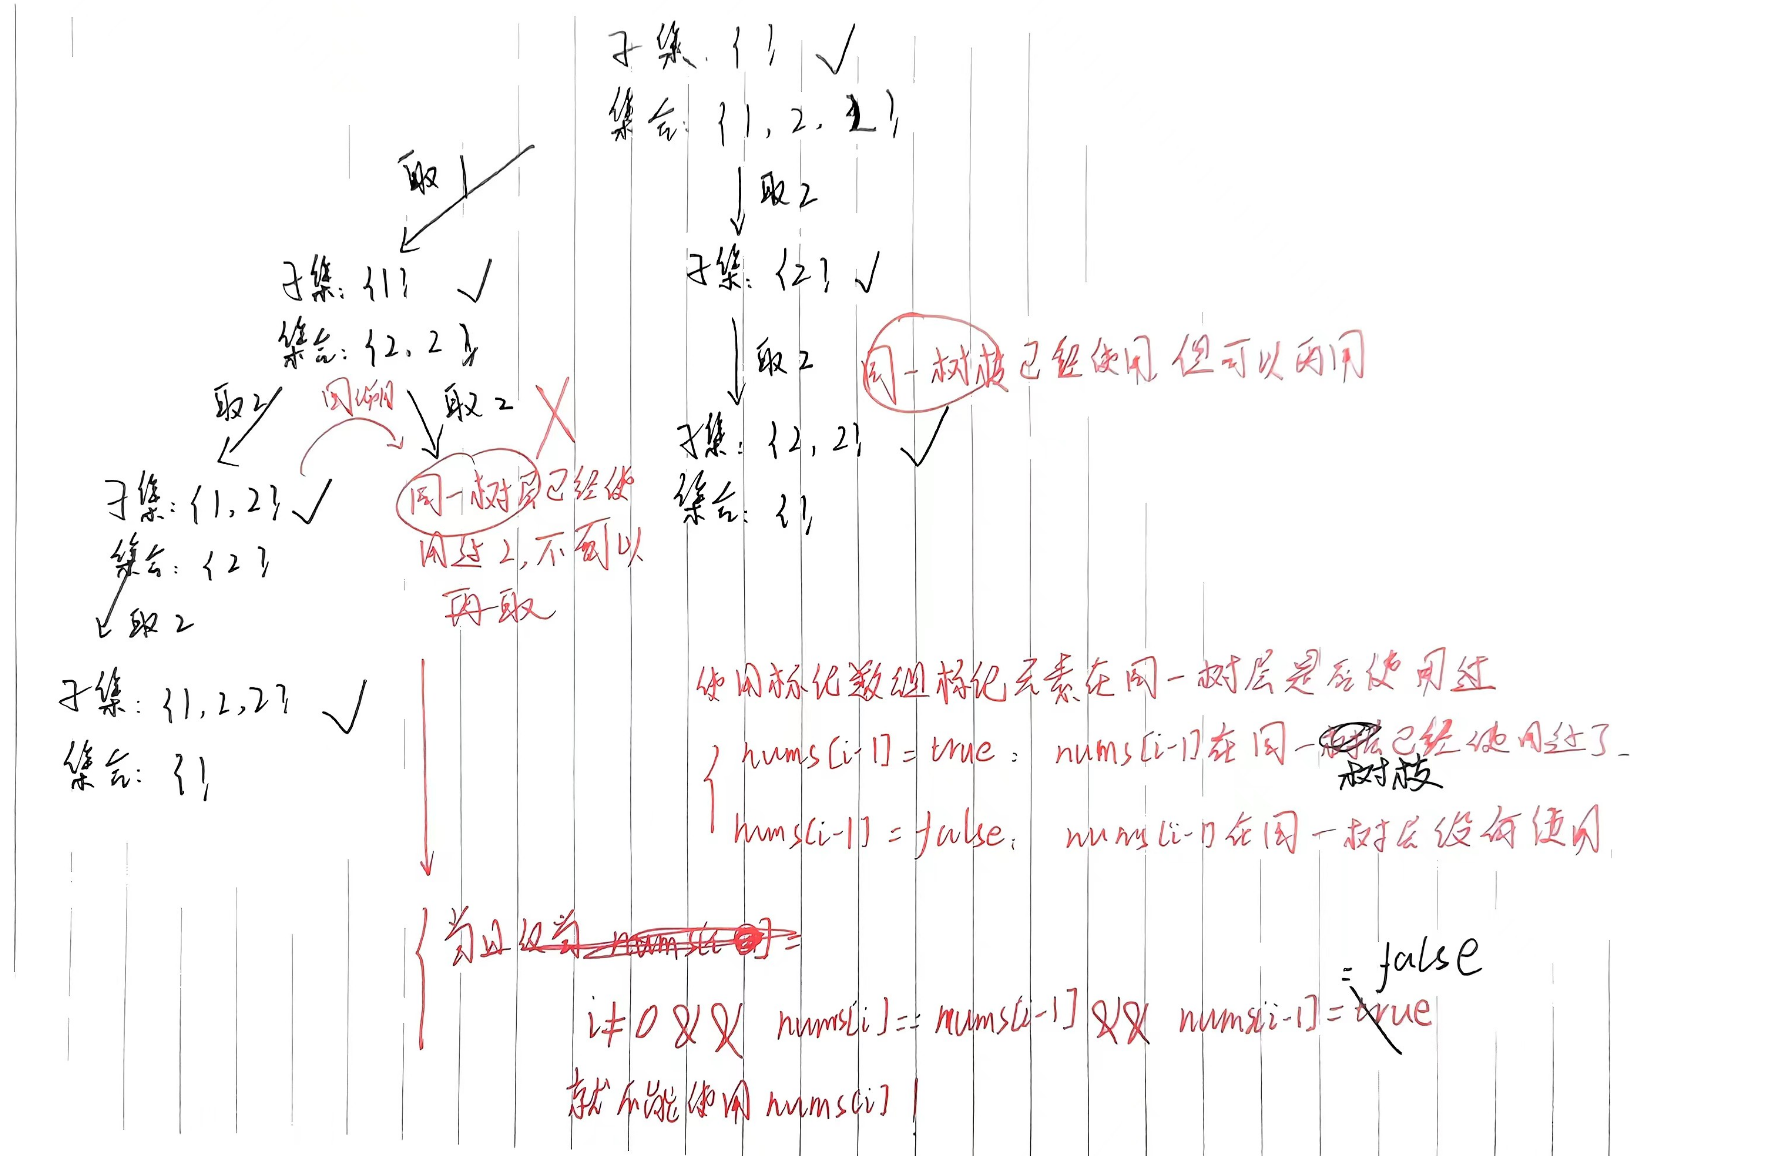 子集: {}
集合: {1, 2, 2}
取1
取2
子集: {1}
集合: {2, 2}
子集: {2}
取2
取2
取2
同一树枝已经使用 但可以再用
子集: {2, 2}
集合: {}
子集: {1, 2}
集合: {2}
同一树层已经使
用过2, 不可以
再取
取2
子集: {1,2,2}
集合: {}
使用标记数组标记元素在同一树层是否使用过
nums[i-1] = true: nums[i-1]在同一树枝已经使用过了
nums[i-1] = false: nums[i-1]在同一树层没有使用
当且仅当 nums[i
= false
i≠0 && nums[i] == nums[i-1] && nums[i-1] = true
就不能使用 nums[i] !